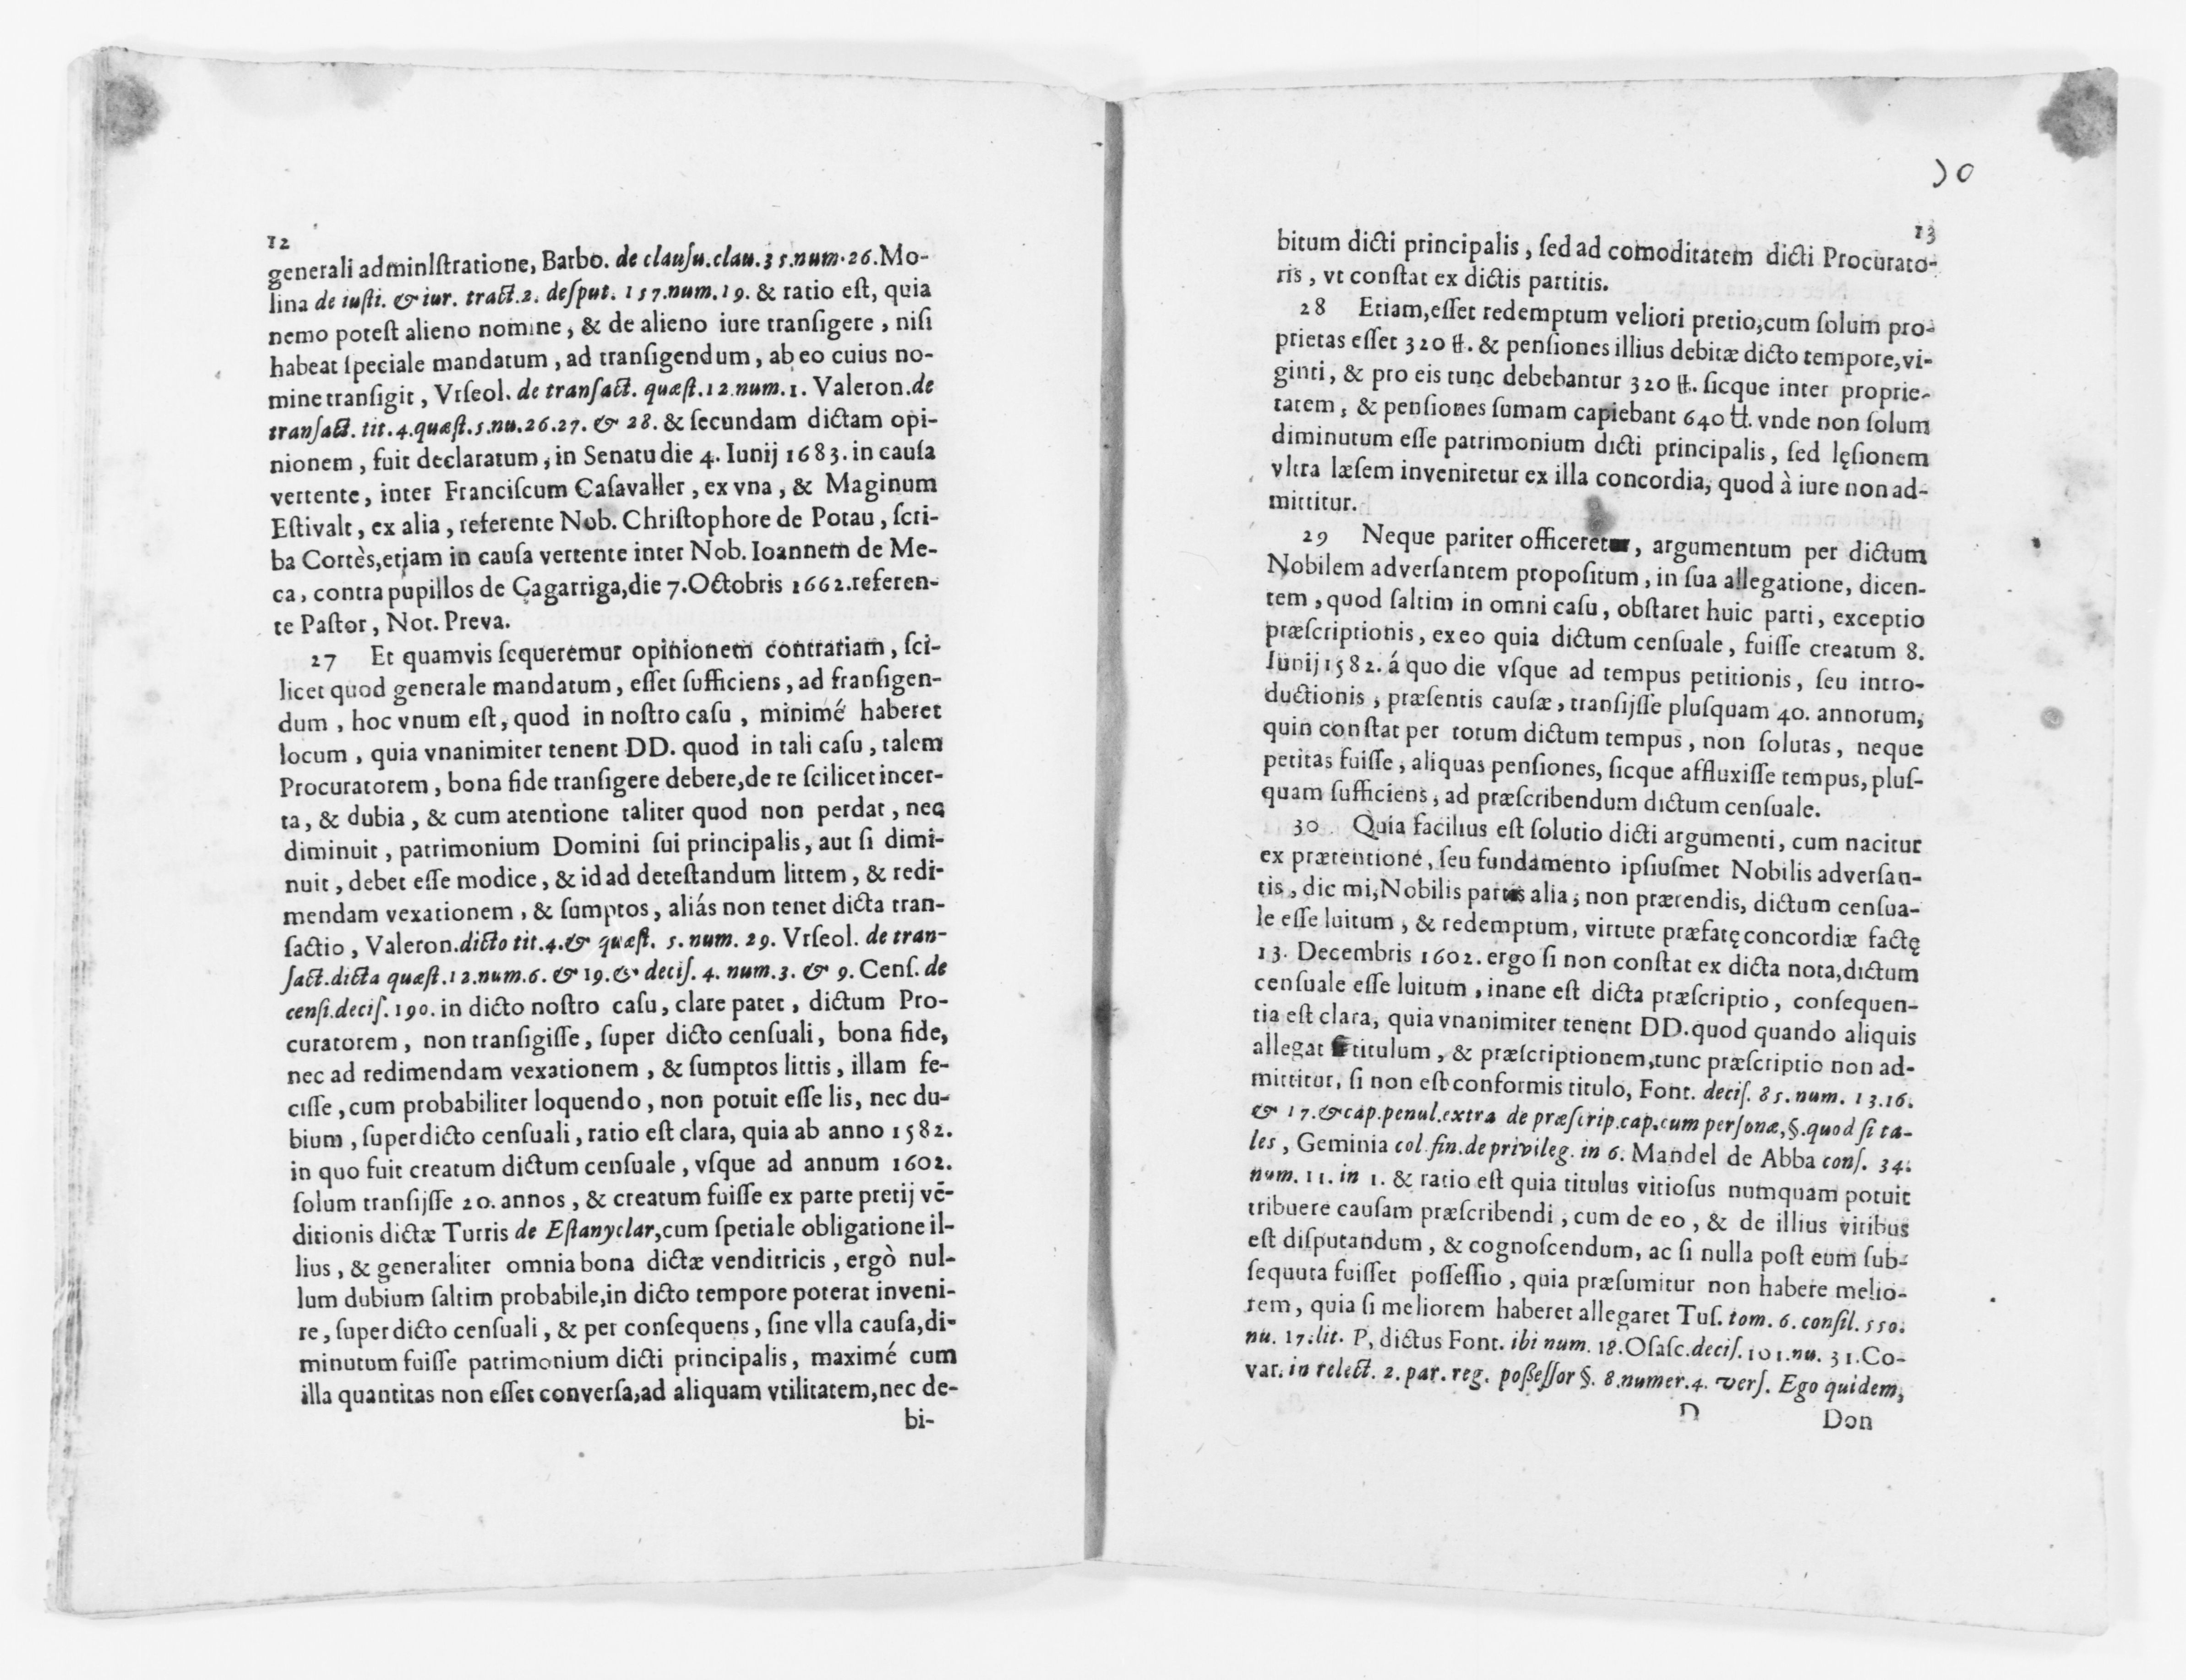 12
generali adminIſtratione, Barbo. de clauſu.clau.35.num.26.Mo-
lina de iuſti. & iur. tract.2. deſput. 157.num.19. & ratio eſt, quia
nemo poteſt alieno nomine, & de alieno iure tranſigere, niſi
habeat ſpeciale mandatum, ad tranſigendum, ab eo cuius no-
mine tranſigit, Vrſeol. de tranſact. quæſt.12.num.1. Valeron.de
tranſact. tit.4.quæſt.5.nu.26.27. & 28. & ſecundam dictam opi-
nionem, fuit declaratum, in Senatu die 4. Iunij 1683. in cauſa
vertente, inter Franciſcum Caſavaller, ex vna, & Maginum
Eſtivalt, ex alia, referente Nob. Chriſtophore de Potau, ſcri-
ba Cortès,etiam in cauſa vertente inter Nob. Ioannem de Me-
ca, contra pupillos de Çagarriga,die 7.Octobris 1662.referen-
te Paſtor, Not. Preva.
27 Et quamvis ſequeremur opinionem contrariam, ſci-
licet quod generale mandatum, eſſet ſufficiens, ad franſigen-
dum, hoc vnum eſt, quod in noſtro caſu, minimé haberet
locum, quia vnanimiter tenent DD. quod in tali caſu, talem
Procuratorem, bona fide tranſigere debere,de re ſcilicet incer-
ta, & dubia, & cum atentione taliter quod non perdat, nec
diminuit, patrimonium Domini ſui principalis, aut ſi dimi-
nuit, debet eſſe modice, & id ad deteſtandum littem, & redi-
mendam vexationem, & ſumptos, aliás non tenet dicta tran-
ſactio, Valeron.dicto tit.4.& quæſt. 5. num. 29. Vrſeol. de tran-
ſact.dicta quæſt.12.num.6. & 19.& deciſ. 4. num.3. & 9. Cenſ. de
cenſi.deciſ.190. in dicto noſtro caſu, clare patet, dictum Pro-
curatorem, non tranſigiſſe, ſuper dicto cenſuali, bona fide,
nec ad redimendam vexationem, & ſumptos littis, illam fe-
ciſſe, cum probabiliter loquendo, non potuit eſſe lis, nec du-
bium, ſuperdicto cenſuali, ratio eſt clara, quia ab anno 1582.
in quo fuit creatum dictum cenſuale, vſque ad annum 1602.
ſolum tranſijſſe 20. annos, & creatum fuiſſe ex parte pretij vē-
ditionis dictæ Turris de Eſtanyclar,cum ſpetiale obligatione il-
lius, & generaliter omnia bona dictæ venditricis, ergò nul-
lum dubium ſaltim probabile,in dicto tempore poterat inveni-
re, ſuperdicto cenſuali, & per conſequens, ſine vlla cauſa,di-
minutum fuiſſe patrimonium dicti principalis, maximé cum
illa quantitas non eſſet converſa,ad aliquam vtilitatem,nec de-
bi-
30
13
bitum dicti principalis, ſed ad comoditatem dicti Procurato-
ris, vt conſtat ex dictis partitis.
28 Etiam,eſſet redemptum veliori pretio,cum ſolum pro-
prietas eſſet 320 ₶. & penſiones illius debitæ dicto tempore,vi-
ginti, & pro eis tunc debebantur 320 ₶. ſicque inter proprie-
tatem, & penſiones ſumam capiebant 640 ₶. vnde non ſolum
diminutum eſſe patrimonium dicti principalis, ſed lęſionem
vltra læſem inveniretur ex illa concordia, quod à iure non ad-
mittitur.
29 Neque pariter officeretur, argumentum per dictum
Nobilem adverſantem propoſitum, in ſua allegatione, dicen-
tem, quod ſaltim in omni caſu, obſtaret huic parti, exceptio
præſcriptionis, ex eo quia dictum cenſuale, fuiſſe creatum 8.
Iunij 1582. á quo die vſque ad tempus petitionis, ſeu intro-
ductionis, præſentis cauſæ, tranſijſſe pluſquam 40. annorum,
quin conſtat per totum dictum tempus, non ſolutas, neque
petitas fuiſſe, aliquas penſiones, ſicque affluxiſſe tempus, pluſ-
quam ſufficiens, ad præſcribendum dictum cenſuale.
30 Quia facilius eſt ſolutio dicti argumenti, cum nacitur
ex prætentione, ſeu fundamento ipſiuſmet Nobilis adverſan-
tis, dic mi, Nobilis partis alia, non prætendis, dictum cenſua-
le eſſe luitum, & redemptum, virtute præfatę concordiæ factę
13. Decembris 1602. ergo ſi non conſtat ex dicta nota,dictum
cenſuale eſſe luitum, inane eſt dicta præſcriptio, conſequen-
tia eſt clara, quia vnanimiter tenent DD.quod quando aliquis
allegat titulum, & præſcriptionem,tunc præſcriptio non ad-
mittitur, ſi non eſt conformis titulo, Font. deciſ. 85.num. 13.16.
& 17.&cap.penul.extra de præſcrip.cap.cum perſonæ,§.quod ſi ta-
les, Geminia col.fin.de privileg. in 6. Mandel de Abba conſ. 34.
num. 11. in 1. & ratio eſt quia titulus vitioſus numquam potuit
tribuere cauſam præſcribendi, cum de eo, & de illius viribus
eſt diſputandum, & cognoſcendum, ac ſi nulla poſt eum ſub-
ſequuta fuiſſet poſſeſſio, quia præſumitur non habere melio-
rem, quia ſi meliorem haberet allegaret Tuſ. tom. 6. conſil. 550.
nu. 17.lit. P, dictus Font. ibi num. 18.Oſaſc.deciſ.101.nu. 31.Co-
var. in relect. 2. par. reg. poßeſſor §. 8.numer.4. verſ. Ego quidem,
D Don